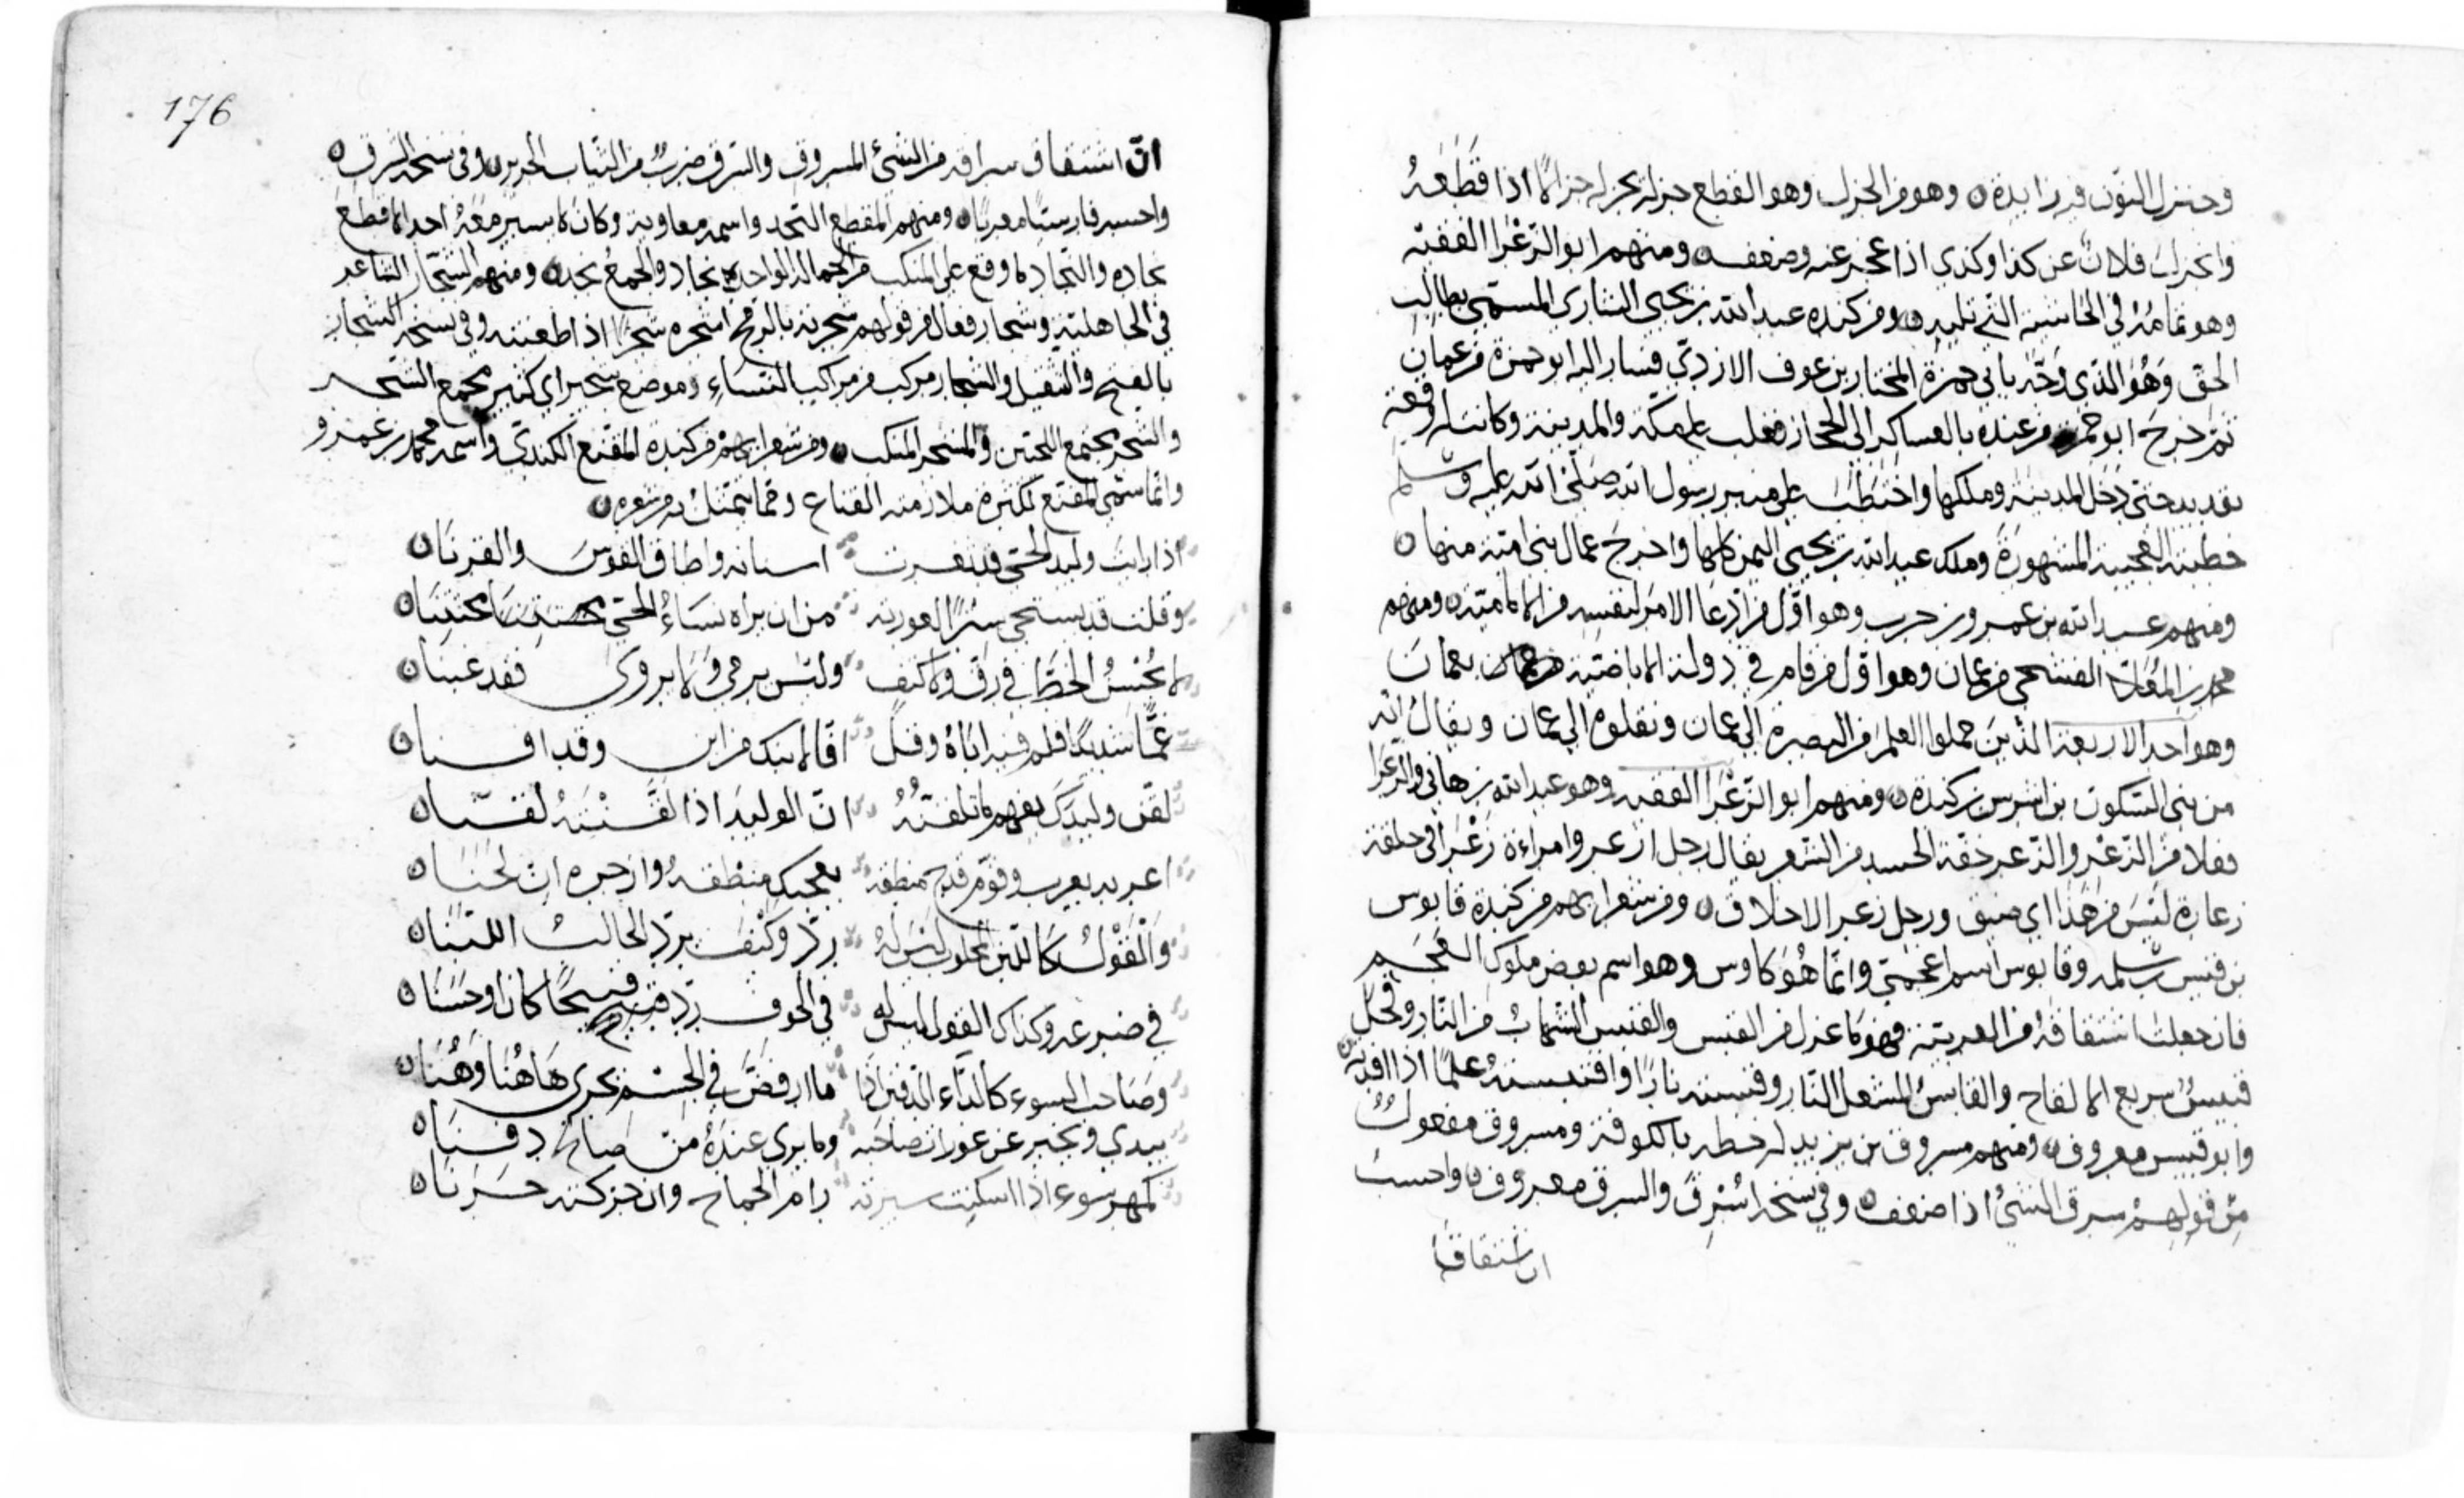 وحنزل النون فيه زايدة وهو من الجزل وهو القطع جزله يجزله جزلا اذا قَطَعَهُ
وانخزل فلان عن كذا وكذي اذا عجز عنه وضعف ومنهم ابو الزَّعْرا الفقيه
وهو تمامه في الحاشية التي تليه ومن كنده عبد الله بن يحيى الشاري المسمّى بطالب
الحق وَهُوَ الّذي وَجّه بابي حمزة المختار بن عوف الازديّ فسار اليه ابو حمزة من عمان
ثم خرج ابو حمزة من عنده بالعساكر الى الحجاز فغلب على مكّة والمدينة وكانت له وقعة
بقديد حتى دَخَل المدينة وملكها واختَطَبَ على منبر رسول الله صَلّى الله عليه وسلم
خطبته العجيبة المشهورة وملك عبد الله بن يحيى اليمن كلها واخرج عمال بني اميّة منها
ومنهم عبد الله بن عمرو بن حرب وهو اوّل من ادّعا الامر لنفسه من الاماميّة ومنهم
محمد بن المعلا الفشحي من عمان وهو اوّل من قام في دولة الاباضيّة بعمان
وهو احد الاربعة الذين حملوا العلم من البصرة الى عمان ونقلوه الى عمان ويقال انه
من بني السّكون بن اشرس بن كندة ومنهم ابو الزَّعْرا الفقيه وهو عبد الله بن هاني والزّعرا
فعلا من الزّعْر والزّعر خفّة الجسد من الشّعر يقال رجل ازعر وامراءة زَعْرَا في خلقة
زعارة لَيْسَ من هَذا اي ضيق ورجل زعر الاخلاق ومن شعرايهم من كندة قابوس
بن قيس بن سلمه وقابوس اسم اعجميّ وانّما هُوَ كاوس وهو اسم بعض ملوك العَجَم
فان جعلت اشتقاقَهُ من العربيّة فهو فاعول من القبس والقبس الشهاب من النّار وفحل
قبيس سريع الالقاح والقابس المشعل النّار وقبسته نارًا واقتبسته علمًا اذا افدته
وابو قبيس معروف ومنهم مسروق بن يزيد له خطه بالكوفة ومسروق مفعول
مِن قولهم سرق الشيُ اذا ضعف وفي نسخه اسْتَرِقُ والسرق معروف واحسب
ان اشتقاق
176
انّ اشتقاق سراقه من الشئ المسروق والسّرق ضربٌ من الثّياب الحرير وفي نسخه السَّرَق
واحسبه فارسيًا معربًا ومنهم المقطع النّجد واسمه معاوية وكان لا يسير مَعَهُ احد الا قطع
نجاده والنّجاد ما وقع على المنكب من الحمالة الواحد نجاد والجمع نجد ومنهم الشّجّار الشاعر
في الجاهليّة وشجار فعال من قولهم شجرته بالرمح اشجره شجرًا اذا طعنته وفي نسخه الشّجار
بالفتح والتثقيل والشّجار مركب من مراكب النّسَاءِ وموضع شجير اي كثير مجمع الشّجر
والشّجر مجتمع اللّحيين والمشجر المنكب ومن شعرايهم من كندة المقنّع الكنديّ واسمه محمد بن عمرو
وانّما سمّي المقنع لكثرة ملازمته القناع وممّا يتمثّل به من شعره
اذا رايت وليد الحيّ قد نغرت اسنانه واطاق القوسَ والقرنَا
وقلت قد يستحي سِترًا لعورته من ان يراه نسَاءُ الحيّ مختتنَا
لا يُحْسِنُ الخطَّ في رقّ ولا كتف وليْس يرمي ولا يروي فقد غبنا
لقّن وليدَكَ يفهم ما تلقنهُ انّ الوليد اذا لَقَّنْتَهُ لَقنَا
اعربه يعرب وقوّم قدح منطقه يعجبك منطقهُ وازجره ان لَحَنَا
وَالْقَوْلُ كَاللّبن المحلوب لَيْسَ لهُ ردّ وكَيْفَ يردّ الحالبُ اللبَنَا
في ضرعه وكذاك القول ليس له في الجوف ردّ قبيحًا كان او حَسَنَا
وصَاحب السوء كالدّاء الدّفين اذا ما ارفضَّ في الجسْم يجري هَاهُنَا وَهُنَا
يبدي ويخبر عن عورات صاحبه وما يرى عندَهُ مَنْ صالح دفنَا
كمهر سوء اذا اسكنت سيرته رام الجماح وان حركته حَرَنَا